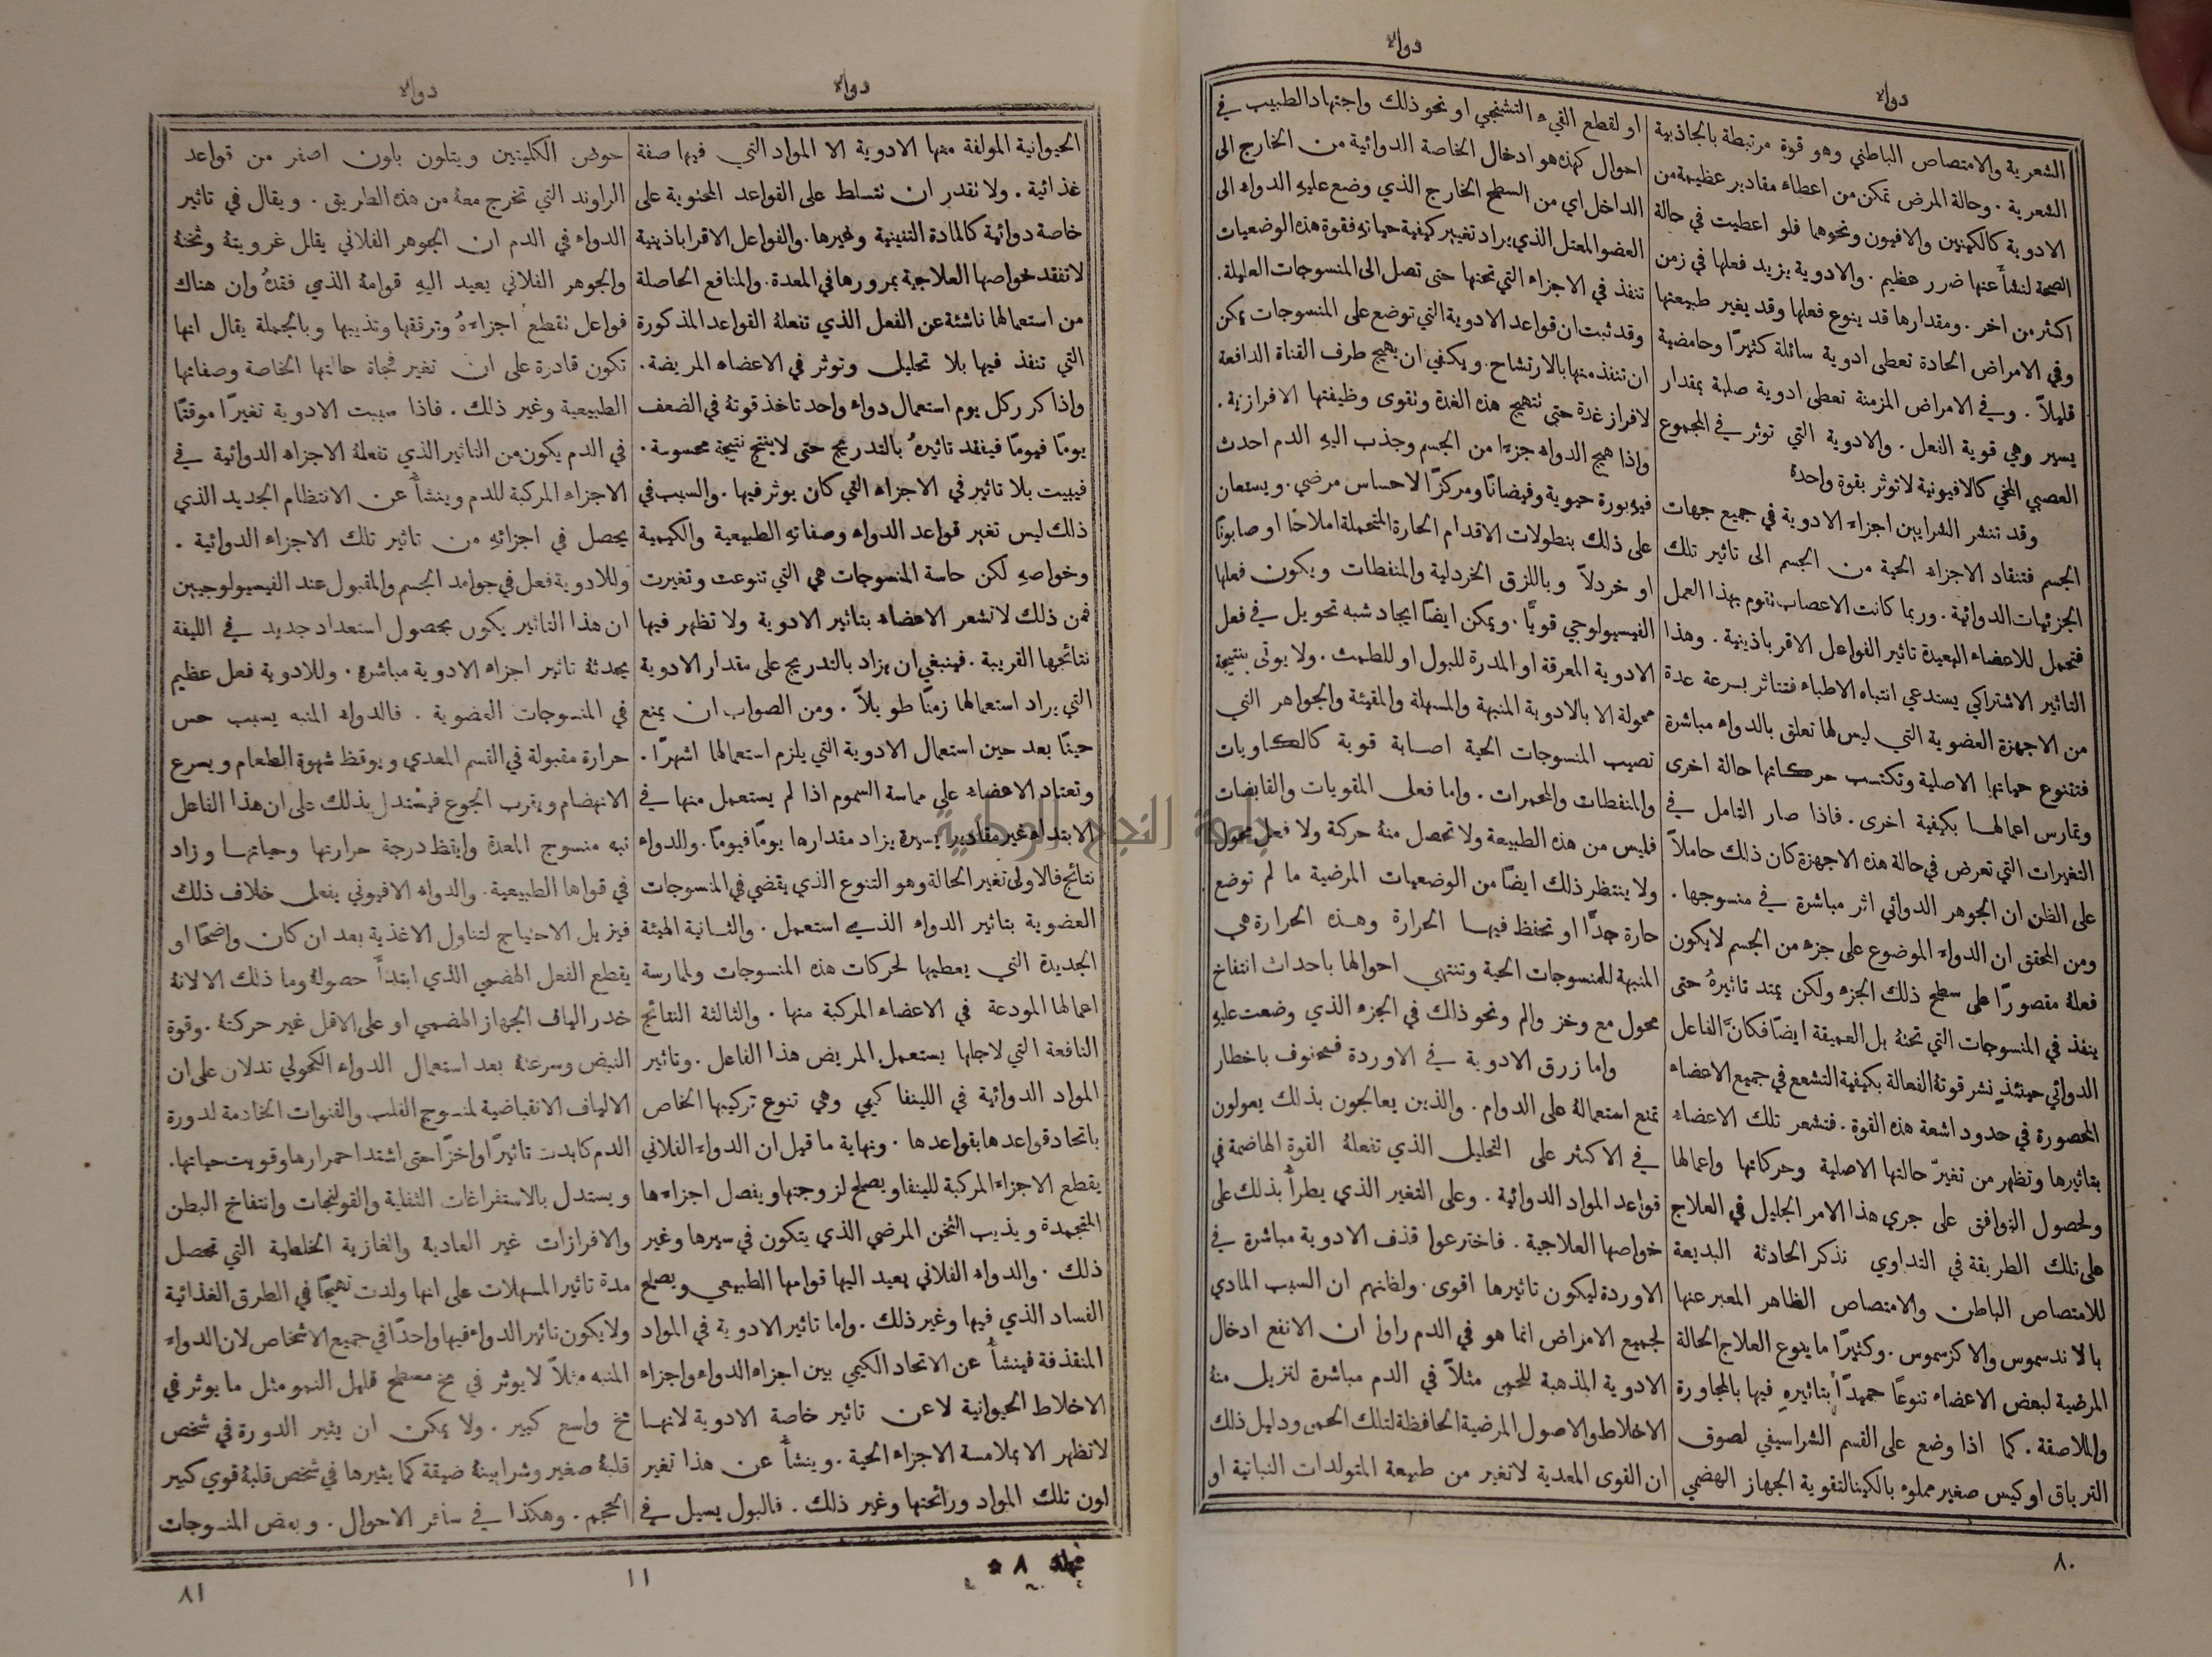 دواء
دواء
الشعرية والامتصاص الباطني وهو قوة مرتبطة بالجاذبية
الشعرية . وحالة المرض تمكن من اعطاء مقادير عظيمة من
الادوية كالكينين والافيون ونحوهما فلو اعطيت في حالة
الصحة لنشأ عنها ضرر عظيم . والادوية يزيد فعلها في زمن
اكثر من اخر . ومقدارها قد ينوع فعلها وقد يغير طبيعتها
وفي الامراض الحادة تعطى ادوية سائلة كثيرًا وحامضية
قليلاً . وفي الامراض المزمنة تعطى ادوية صلبة بمقدار
يسير وهي قوية الفعل . والادوية التي توثر في المجموع
العصبي المخي كالافيونية لا توثر بقوة واحدة
وقد تنشر الشرايين اجزاء الادوية في جميع جهات
الجسم فتنقاد الاجزاء الحية من الجسم الى تاثير تلك
الجزئيات الدوائية . وربما كانت الاعصاب تقوم بهذا العمل
فتحمل للاعضاء البعيدة تاثير الفواعل الاقرباذينية . وهذا
التاثير الاشتراكي يستدعي انتباه الاطباء فتتاثر بسرعة عدة
من الاجهزة العضوية التي ليس لها تعلق بالدواء مباشرة
فتتنوع حياتها الاصلية وتكتسب حركاتها حالة اخرى
وتمارس اعمالها بكيفية اخرى . فاذا صار التامل في
التغيرات التي تعرض في حالة هذه الاجهزة كان ذلك حاملاً
على الظن ان الجوهر الدوائي اثر مباشرة في منسوجها .
ومن المحقق ان الدواء الموضوع على جزء من الجسم لا يكون
فعلهُ مقصورًا على سطح ذلك الجزء ولكن يمتد تاثيرهُ حتى
ينفذ في المنسوجات التي تحتهُ بل العميقة ايضًا فكانَّ الفاعل
الدوائي حينئذٍ نشر قوتهُ الفعالة بكيفية التشعع في جميع الاعضاء
المحصورة في حدود اشعة هذه القوة . فتشعر تلك الاعضاء
بتاثيرها وتظهر من تغيرّ حالتها الاصلية وحركاتها واعمالها
ولحصول التوافق على جري هذا الامر الجليل في العلاج
على تلك الطريقة في التداوي نذكر الحادثة البديعة
للامتصاص الباطن والامتصاص الظاهر المعبر عنها
بالاندسموس والاكزسموس . وكثيرًا ما ينوع العلاج الحالة
المرضية لبعض الاعضاء تنوعًا حميدًا بتاثيرهِ فيها بالمجاورة
والملاصقة . كما اذا وضع على القسم الشراسيفي لصوق
الترياق او كيس صغير مملوء بالكينا لتقوية الجهاز الهضمي
او لقطع القيء التشنجي او نحو ذلك واجتهاد الطبيب في
احوال كهذه هو ادخال الخاصة الدوائية من الخارج الى
الداخل اي من السطح الخارج الذي وضع عليهِ الدواء الى
العضو المعتل الذي يراد تغيير كيفية حياتهِ فقوة هذه الوضعيات
تنفذ في الاجزاء التي تحتها حتى تصل الى المنسوجات العليلة .
وقد ثبت ان قواعد الادوية التي توضع على المنسوجات يمكن
ان تنفذ منها بالارتشاح . ويكفي ان يهيج طرف القناة الدافعة
لافراز غدة حتى تتهيج هذه الغدة وتقوى وظيفتها الافرازية .
واذا هيج الدواء جزءا من الجسم وجذب اليهِ الدم احدث
فيهِ بورة حيوية وفيضانًا ومركزًا لاحساس مرضي . ويستعان
على ذلك بنطولات الاقدام الحارة المتحملة املاحًا او صابونًا
او خردلاً وباللزق الخردلية والمنفطات ويكون فعلها
الفيسيولوجي قويًّا . ويمكن ايضًا ايجاد شبه تحويل في فعل
الادوية المعرقة او المدرة للبول او للطمث . ولا يوتى بنتيجة
محولة الا بالادوية المنبهة والمسهلة والمقيئة والجواهر التي
تصيب المنسوجات الحية اصابة قوية كالكاويات
والمنفطات والمحمرات . واما فعل المقويات والقابضات
فليس من هذه الطبيعة ولا تحصل منهُ حركة ولا فعل محول
ولا ينتظر ذلك ايضًا من الوضعيات المرضية ما لم توضع
حارة جدًّا او تحفظ فيها الحرارة وهذه الحرارة هي
المنبهة للمنسوجات الحية وتنتهي احوالها باحداث انتفاخ
محول مع وخز والم ونحو ذلك في الجزء الذي وضعت عليهِ
واما زرق الادوية في الاوردة فمخوف باخطار
تمنع استعمالهُ على الدوام . والذين يعالجون بذلك يعولون
في الاكثر على التحليل الذي تفعلهُ القوة الهاضمة في
قواعد المواد الدوائية . وعلى التغير الذي يطرأ بذلك على
خواصها العلاجية . فاخترعوا قذف الادوية مباشرة في
الاوردة ليكون تاثيرها اقوى . ولظنهم ان السبب المادي
لجميع الامراض انما هو في الدم راوا ان الانفع ادخال
الادوية المذهبة للحمى مثلاً في الدم مباشرة لتزيل منهُ
الاخلاط والاصول المرضية الحافظة لتلك الحمى ودليل ذلك
ان القوى المعدية لا تغير من طبيعة المتولدات النباتية او
٨٠
دواء
دواء
الحيوانية المولفة منها الادوية الا المواد التي فيها صفة
غذائية . ولا تقدر ان تتسلط على القواعد المحتوية على
خاصة دوائية كالمادة التنينية وغيرها . والفواعل الاقراباذينية
لا تفقد خواصها العلاجية بمرورها في المعدة . والمنافع الحاصلة
من استعمالها ناشئة عن الفعل الذي تفعلهُ القواعد المذكورة
التي تنفذ فيها بلا تحليل وتوثر في الاعضاء المريضة .
واذا كرر كل يوم استعمال دواء واحد تاخذ قوتهُ في الضعف
يومًا فيومًا فيفقد تاثيرهُ بالتدريج حتى لا ينتج نتيجة محسوسة .
فيبيت بلا تاثير في الاجزاء التي كان يوثر فيها . والسبب في
ذلك ليس تغير قواعد الدواء وصفاتهِ الطبيعية والكيمية
وخواصهِ لكن حاسة المنسوجات هي التي تنوعت وتغيرت
فمن ذلك لا تشعر الاعضاء بتاثير الادوية ولا تظهر فيها
نتائجها القريبة . فينبغي ان يزاد بالتدريج على مقدار الادوية
التي يراد استعمالها زمنًا طويلاً . ومن الصواب ان يمنع
حينًا بعد حين استعمال الادوية التي يلزم استعمالها اشهرًا .
وتعتاد الاعضاء على مماسة السموم اذا لم يستعمل منها في
الابتداء غير مقادير يسيرة يزاد مقدارها يومًا فيومًا . وللدواء
نتائج فالاولى تغير الحالة وهو التنوع الذي يقضي في المنسوجات
العضوية بتاثير الدواء الذي استعمل . والثانية الهيئة
الجديدة التي يعطيها لحركات هذه المنسوجات ولممارسة
اعمالها المودعة في الاعضاء المركبة منها . والثالثة النتائج
النافعة التي لاجلها يستعمل المريض هذا الفاعل . وتاثير
المواد الدوائية في اللينفا كيمي وهي تنوع تركيبها الخاص
باتحاد قواعدها بقواعدها . ونهاية ما قيل ان الدواء الفلاني
يقطع الاجزاء المركبة للينفا ويصلح لزوجتها ويفصل اجزاءها
المتجمدة ويذيب الثخن المرضي الذي يتكون في سيرها وغير
ذلك . والدواء الفلاني يعيد اليها قوامها الطبيعي ويصلح
الفساد الذي فيها وغير ذلك . واما تاثير الادوية في المواد
المنقذفة فينشأ عن الاتحاد الكيمي بين اجزاء الدواء واجزاء
الاخلاط الحيوانية لا عن تاثير خاصة الادوية لانها
لا تظهر الا بملامسة الاجزاء الحية . وينشأ عن هذا تغير
لون تلك المواد ورائحتها وغير ذلك . فالبول يسيل في
حوض الكليتين ويتلون بلون اصفر من قواعد
الراوند التي تخرج معهُ من هذه الطريق . ويقال في تاثير
الدواء في الدم ان الجوهر الفلاني يقلل غرويتهُ وثخنهُ
والجوهر الفلاني يعيد اليهِ قوامهُ الذي فقدهُ وان هناك
فواعل تقطع اجزاءهُ وترققها وتذيبها وبالجملة يقال انها
تكون قادرة على ان تغير فجاة حالتها الخاصة وصفاتها
الطبيعية وغير ذلك . فاذا سببت الادوية تغيرًا موقتًا
في الدم يكون من التاثير الذي تفعلهُ الاجزاء الدوائية في
الاجزاء المركبة للدم وينشأُ عن الانتظام الجديد الذي
يحصل في اجزائهِ من تاثير تلك الاجزاء الدوائية .
وللادوية فعل في جوامد الجسم والمقبول عند الفيسيولوجيين
ان هذا التاثير يكون بحصول استعداد جديد في الليفة
يحدثهُ تاثير اجزاء الادوية مباشرة . وللادوية فعل عظيم
في المنسوجات العضوية . فالدواء المنبه يسبب حس
حرارة مقبولة في القسم المعدي ويوقظ شهوة الطعام ويسرع
الانهضام ويقرب الجوع فيستدل بذلك على ان هذا الفاعل
نبه منسوج المعدة وايقظ درجة حرارتها وحياتها وزاد
في قواها الطبيعية . والدواء الافيوني يفعل خلاف ذلك
فيزيل الاحتياج لتناول الاغذية بعد ان كان واضحًا او
يقطع الفعل الهضمي الذي ابتدأ حصولهُ وما ذلك الا لانهُ
خدر الياف الجهاز الهضمي او على الاقل غير حركتهُ . وقوة
النبض وسرعتهُ بعد استعمال الدواء الكحولي تدلان على ان
الالياف الانقباضية لمنسوج القلب والقنوات الخادمة لدورة
الدم كابدت تاثيرًا واخزًا حتى اشتد احمرارها وقويت حياتها .
ويستدل بالاستفراغات الثفلية والقولنجات وانتفاخ البطن
والافرازات غير العادية والغازية الخلطية التي تحصل
مدة تاثير المسهلات على انها ولدت تهيجًا في الطرق الغذائية
ولا يكون تاثير الدواء فيها واحدًا في جميع الاشخاص لان الدواء
المنبه مثلاً لا يوثر في مخ مسطح قليل النمو مثل ما يوثر في
مخ واسع كبير . ولا يمكن ان يثير الدورة في شخص
قلبهُ صغير وشرايينهُ ضيقة كما يثيرها في شخص قلبهُ قوي كبير
الحجم . وهكذا في سائر الاحوال . وبعض المنسوجات
٨
١١
٨١
جامعة النجاح الوطنية